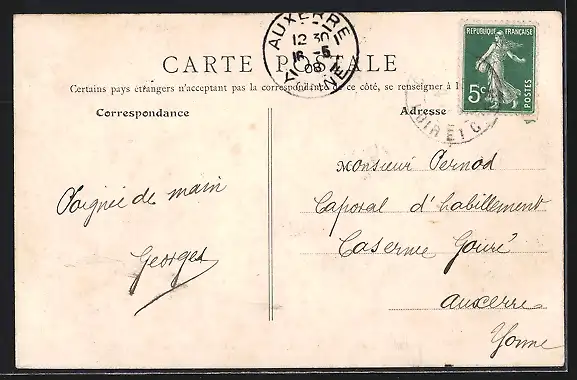 CARTE POSTALE
Certains pays étrangers n'acceptant pas la correspondance de ce côté, se renseigner à
Correspondance
Adresse
AUXERRE
12 30
16 - 5
08
YONNE
REPUBLIQUE FRANÇAISE
5c
POSTES
LOIRET
Poignée de main
Georges
Monsieur Pernod
Caporal d'habillement
Caserne Gouré
Auxerre
Yonne